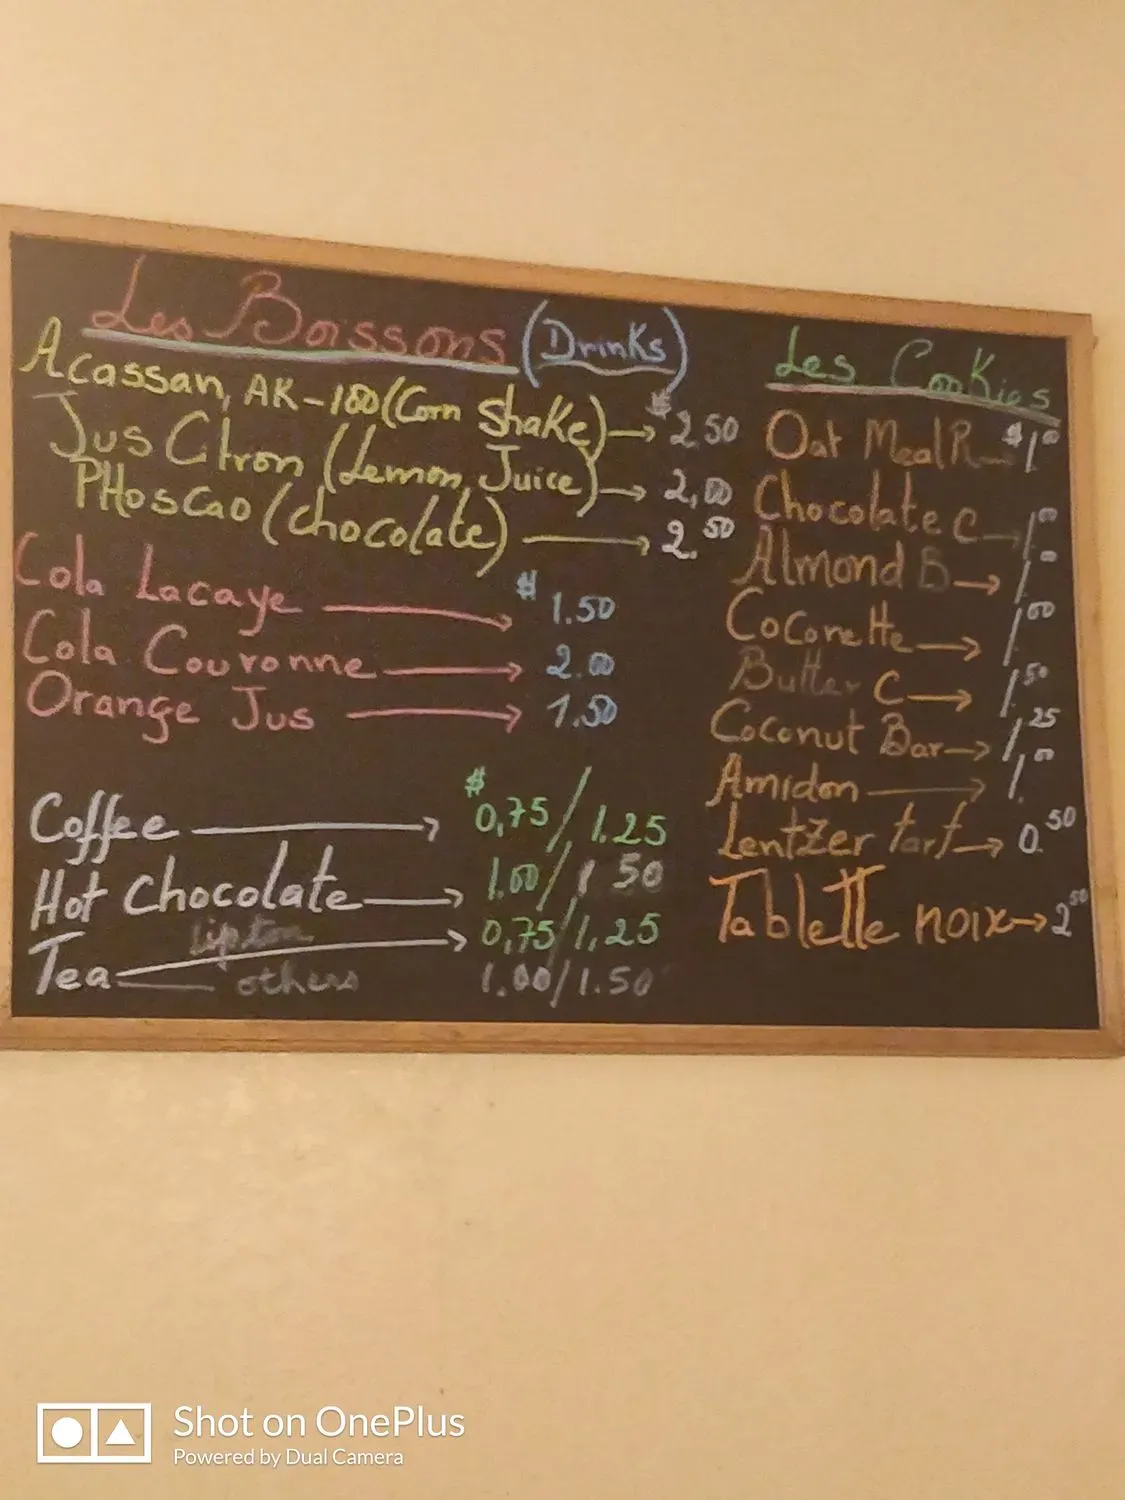 Les Boissons (Drinks)
Acassan, AK-100 (Corn Shake) → $ 2.50
Jus Citron (Lemon Juice) → 2,00
PHoscao (chocolate) → 2.50
Cola Lacaye → $ 1.50
Cola Couronne → 2.00
Orange Jus → 1.50
Coffee → $ 0,75/1.25
Hot Chocolate → 1.00/1 50
Tea lipton → 0,75/1,25
others 1.00/1.50
Les Cookies
Oat Meal R → $1.00
Chocolate C → 1.00
Almond B → 1.00
Coconette → 1.00
Butter C → 1.50
Coconut Bar → 1.25
Amidon → 1.00
Lentzer tart → 0.50
Tablette noix → 2 50
Shot on OnePlus
Powered by Dual Camera